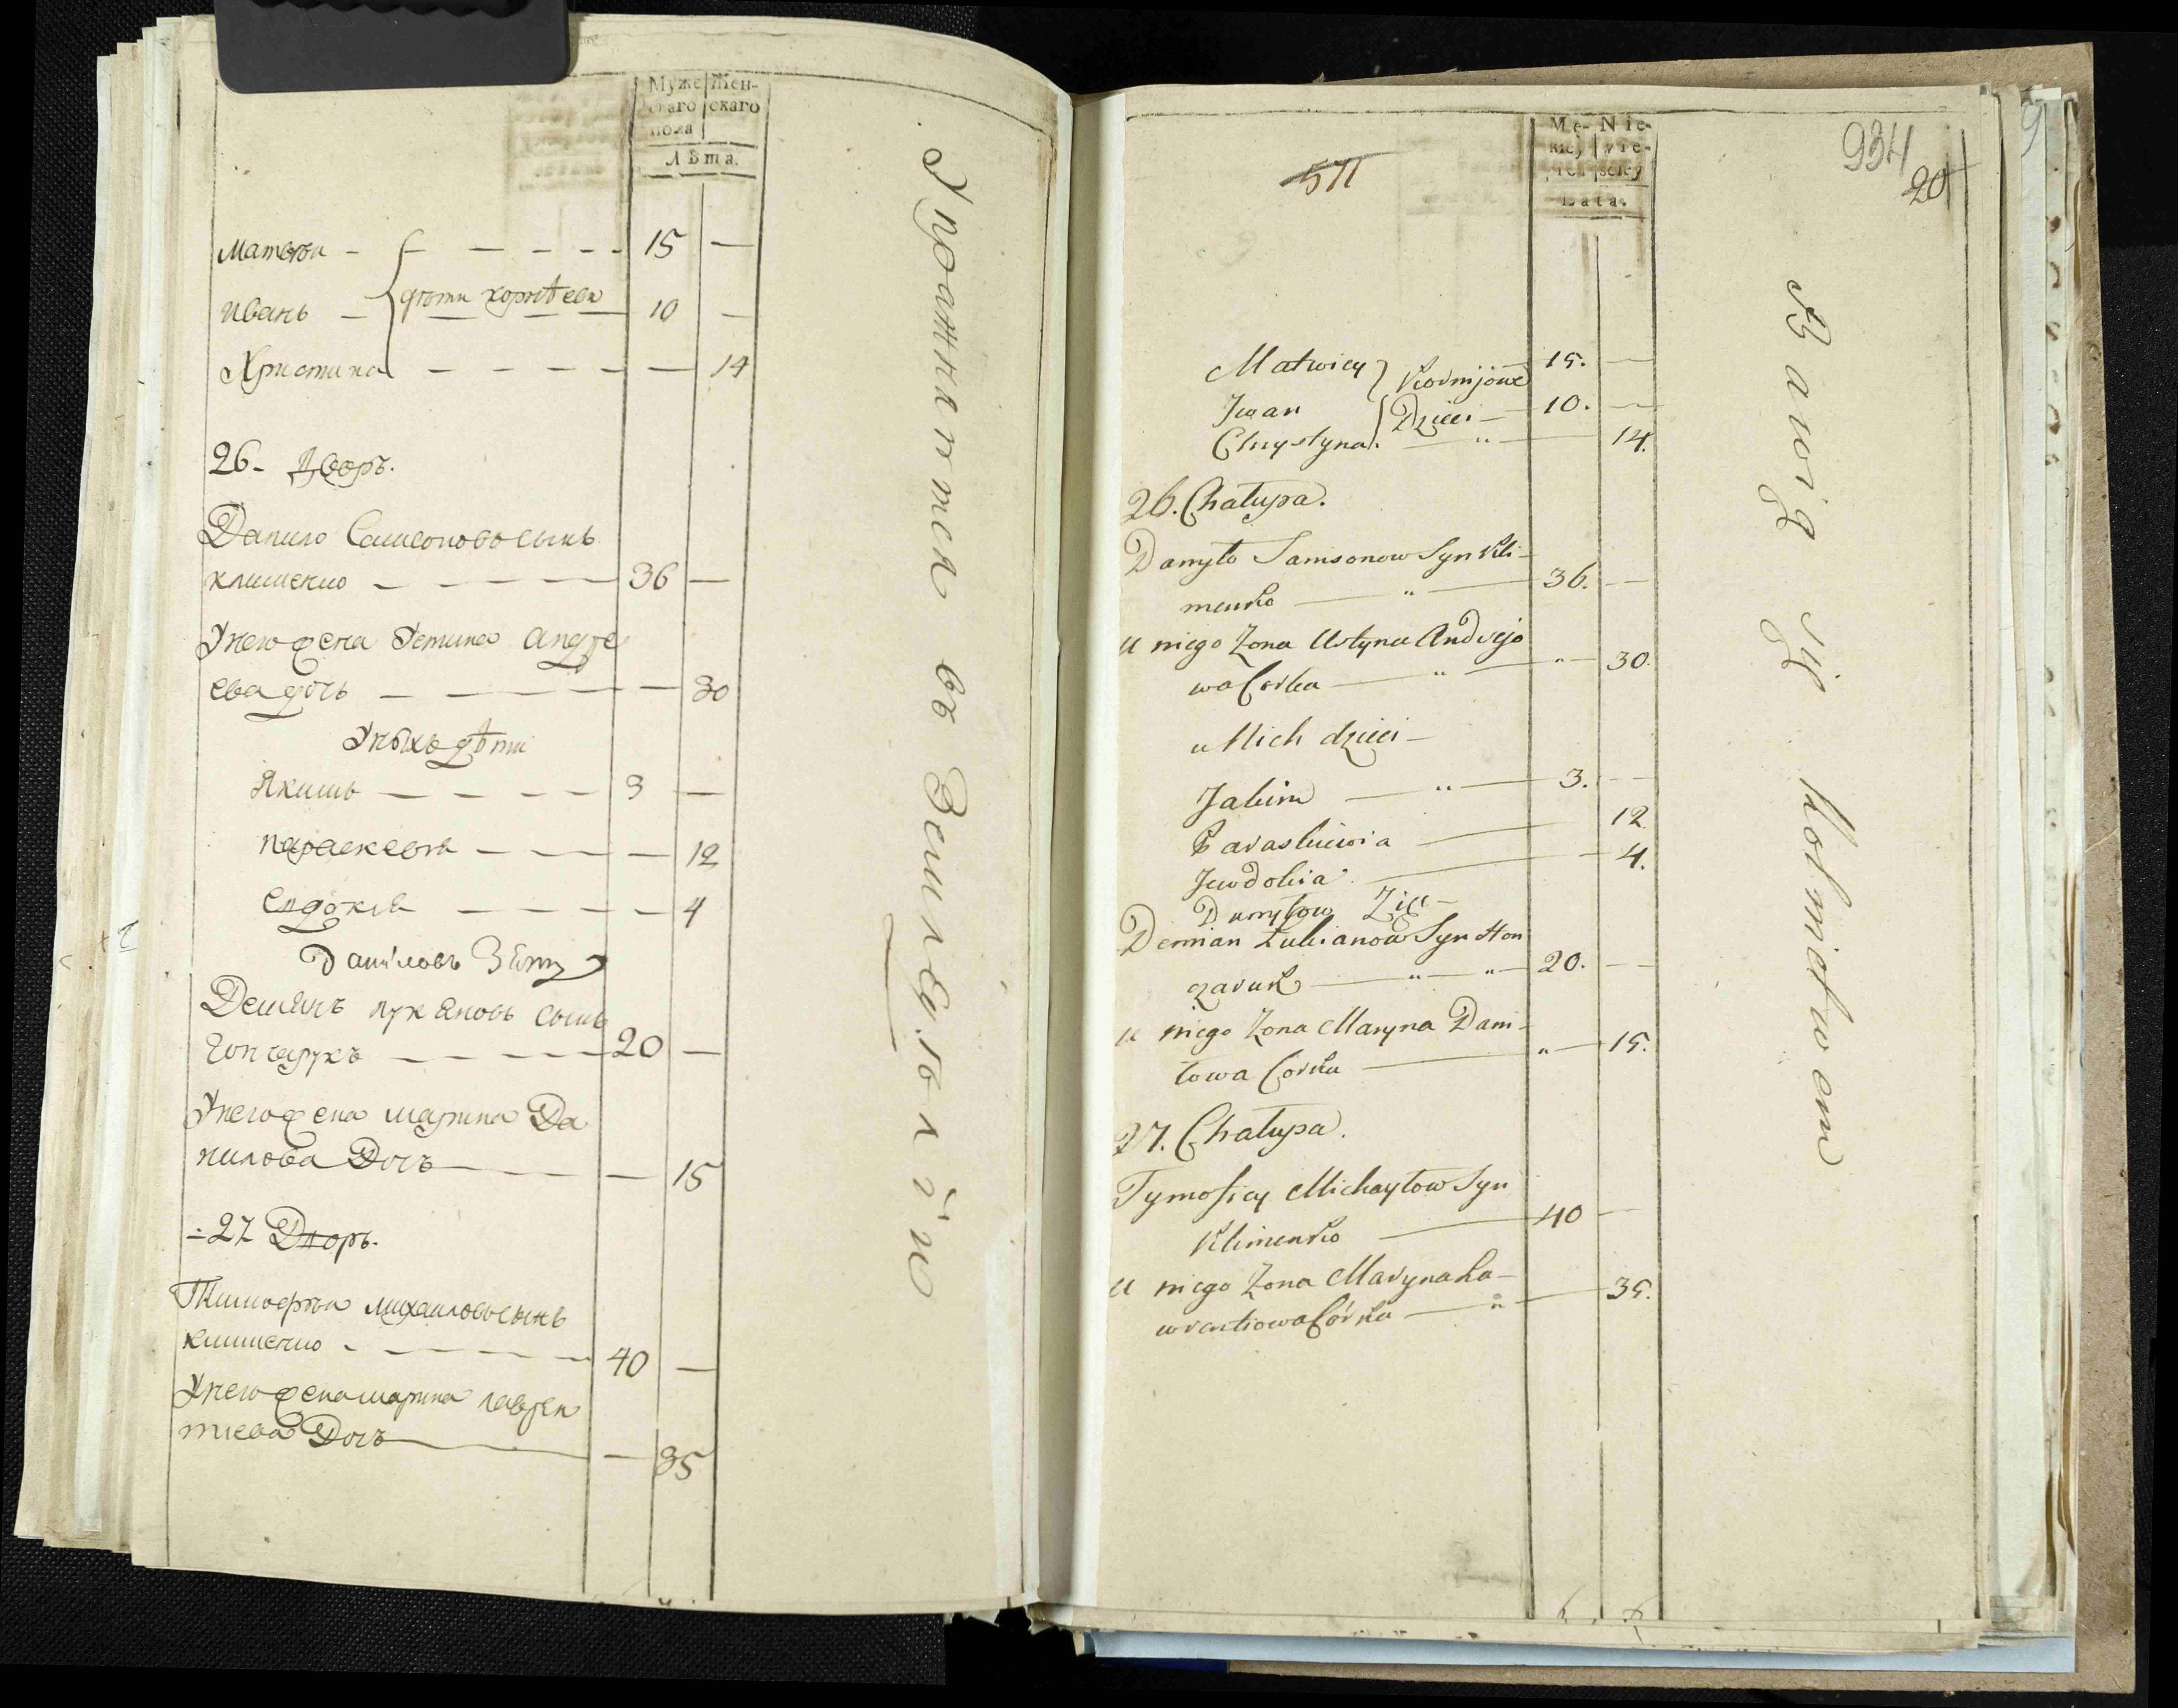 Муже Жен-
скаго скаго
пола
Лѣта.
Матвѣи - 15 —
Иванъ — дѣти корнѣеви 10 —
Христина — 14
26 - Дворъ.
Данило Самсоновъ сынъ
клименко — 36 —
Унего жена Устина андре
ева дочь — 30
Уныхъ дѣти
Якимъ — 3 —
параскевия — 12
Евдокия — 4
Даниловъ Зять
Демянъ лукяновъ сынъ
Гончарукъ — 20 —
Унего жена марина Да
нилова Дочъ — 15
27 Дворъ.
Тимофѣи михаиловъ сынъ
клименко - 40 —
Унего жена марина лаврен
тиева Дочъ — 35
Упражняются въ Земледѣлѣи
571
934
20
Mę- Nie-
skiey wie-
płci sciey
Lata.
Matwiey } Kornijowe 15. —
Iwan Dzieci — 10. —
Chrystyna — " — 14.
26. Chałupa.
Danyło Samsonow Syn Kli-
menko — " — 36. —
u niego Żona Ustyna Andrejo
wa Corka — " — " — 30.
u Nich dzieci —
Jakim — " — 3. —
Paraskiewia — 12
Jewdokia — 4.
Danyłow Zięć —
Demian Łukianow Syn Hon
czaruk — " — " — 20. —
u niego Żona Maryna Dani-
łowa Corka — " — 15.
27. Chałupa.
Tymofiey Michayłow Syn
Klimenko — 40 —
u niego Żona Maryna Ła-
wrentiowa Córka — " — 35.
Bawią się Rolnictwem